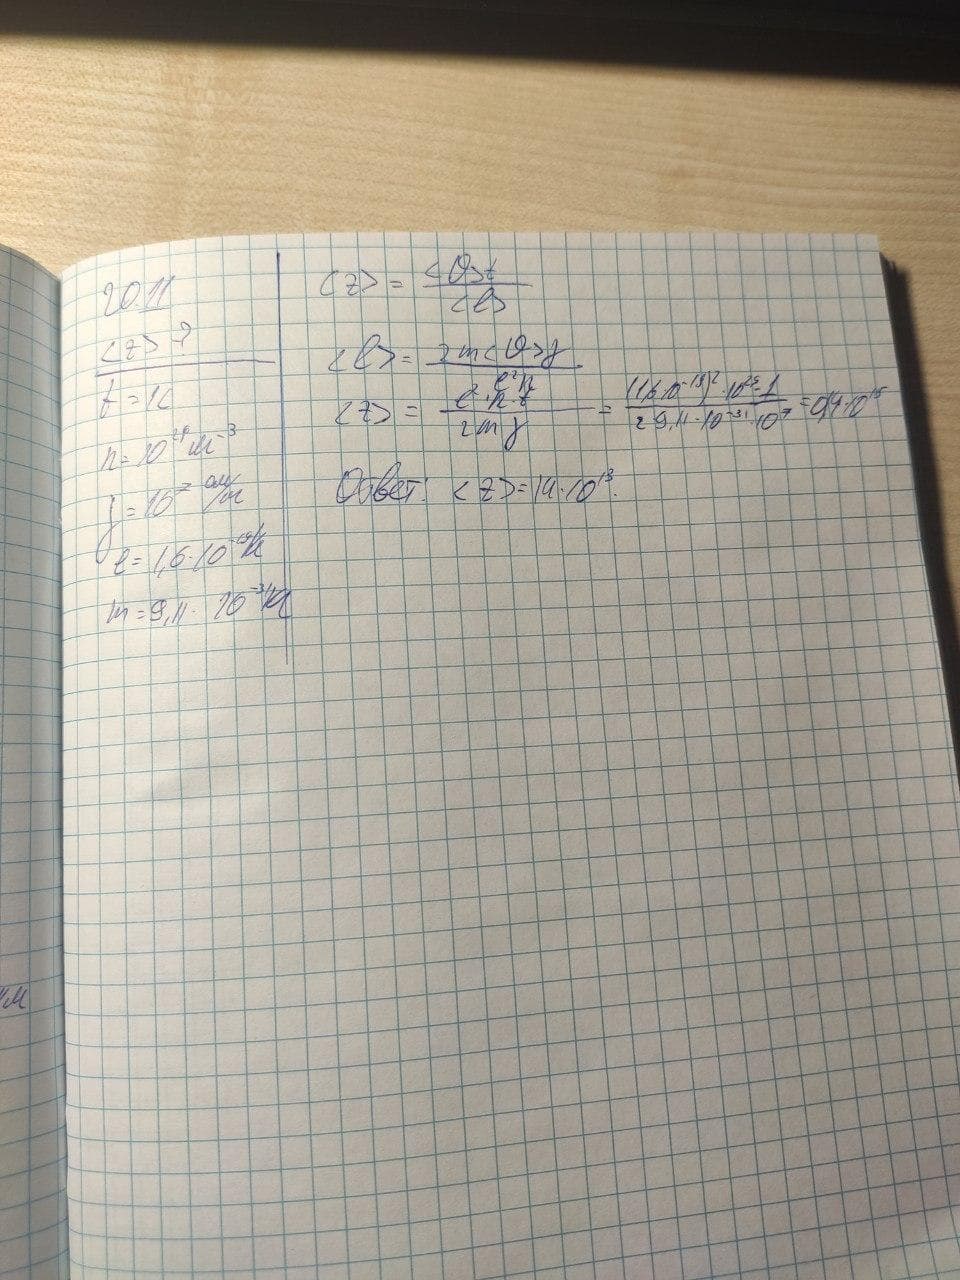 20.11
<z> ?
t = 1c
n = 10²⁹ м⁻³
γ = 10⁷ см/м
e = 1,6·10⁻¹⁹ Кл
m = 9,11 · 10⁻³¹ кг
<z> = <υ>t / <l>
<l> = 2m<υ>γ / e²n
<z> = e²·n·t / 2mγ = (1,6·10⁻¹⁹)²·10²⁹·1 / 2·9,11·10⁻³¹·10⁷ = 0,14·10¹⁵
Ответ: <z> = 14·10¹³.